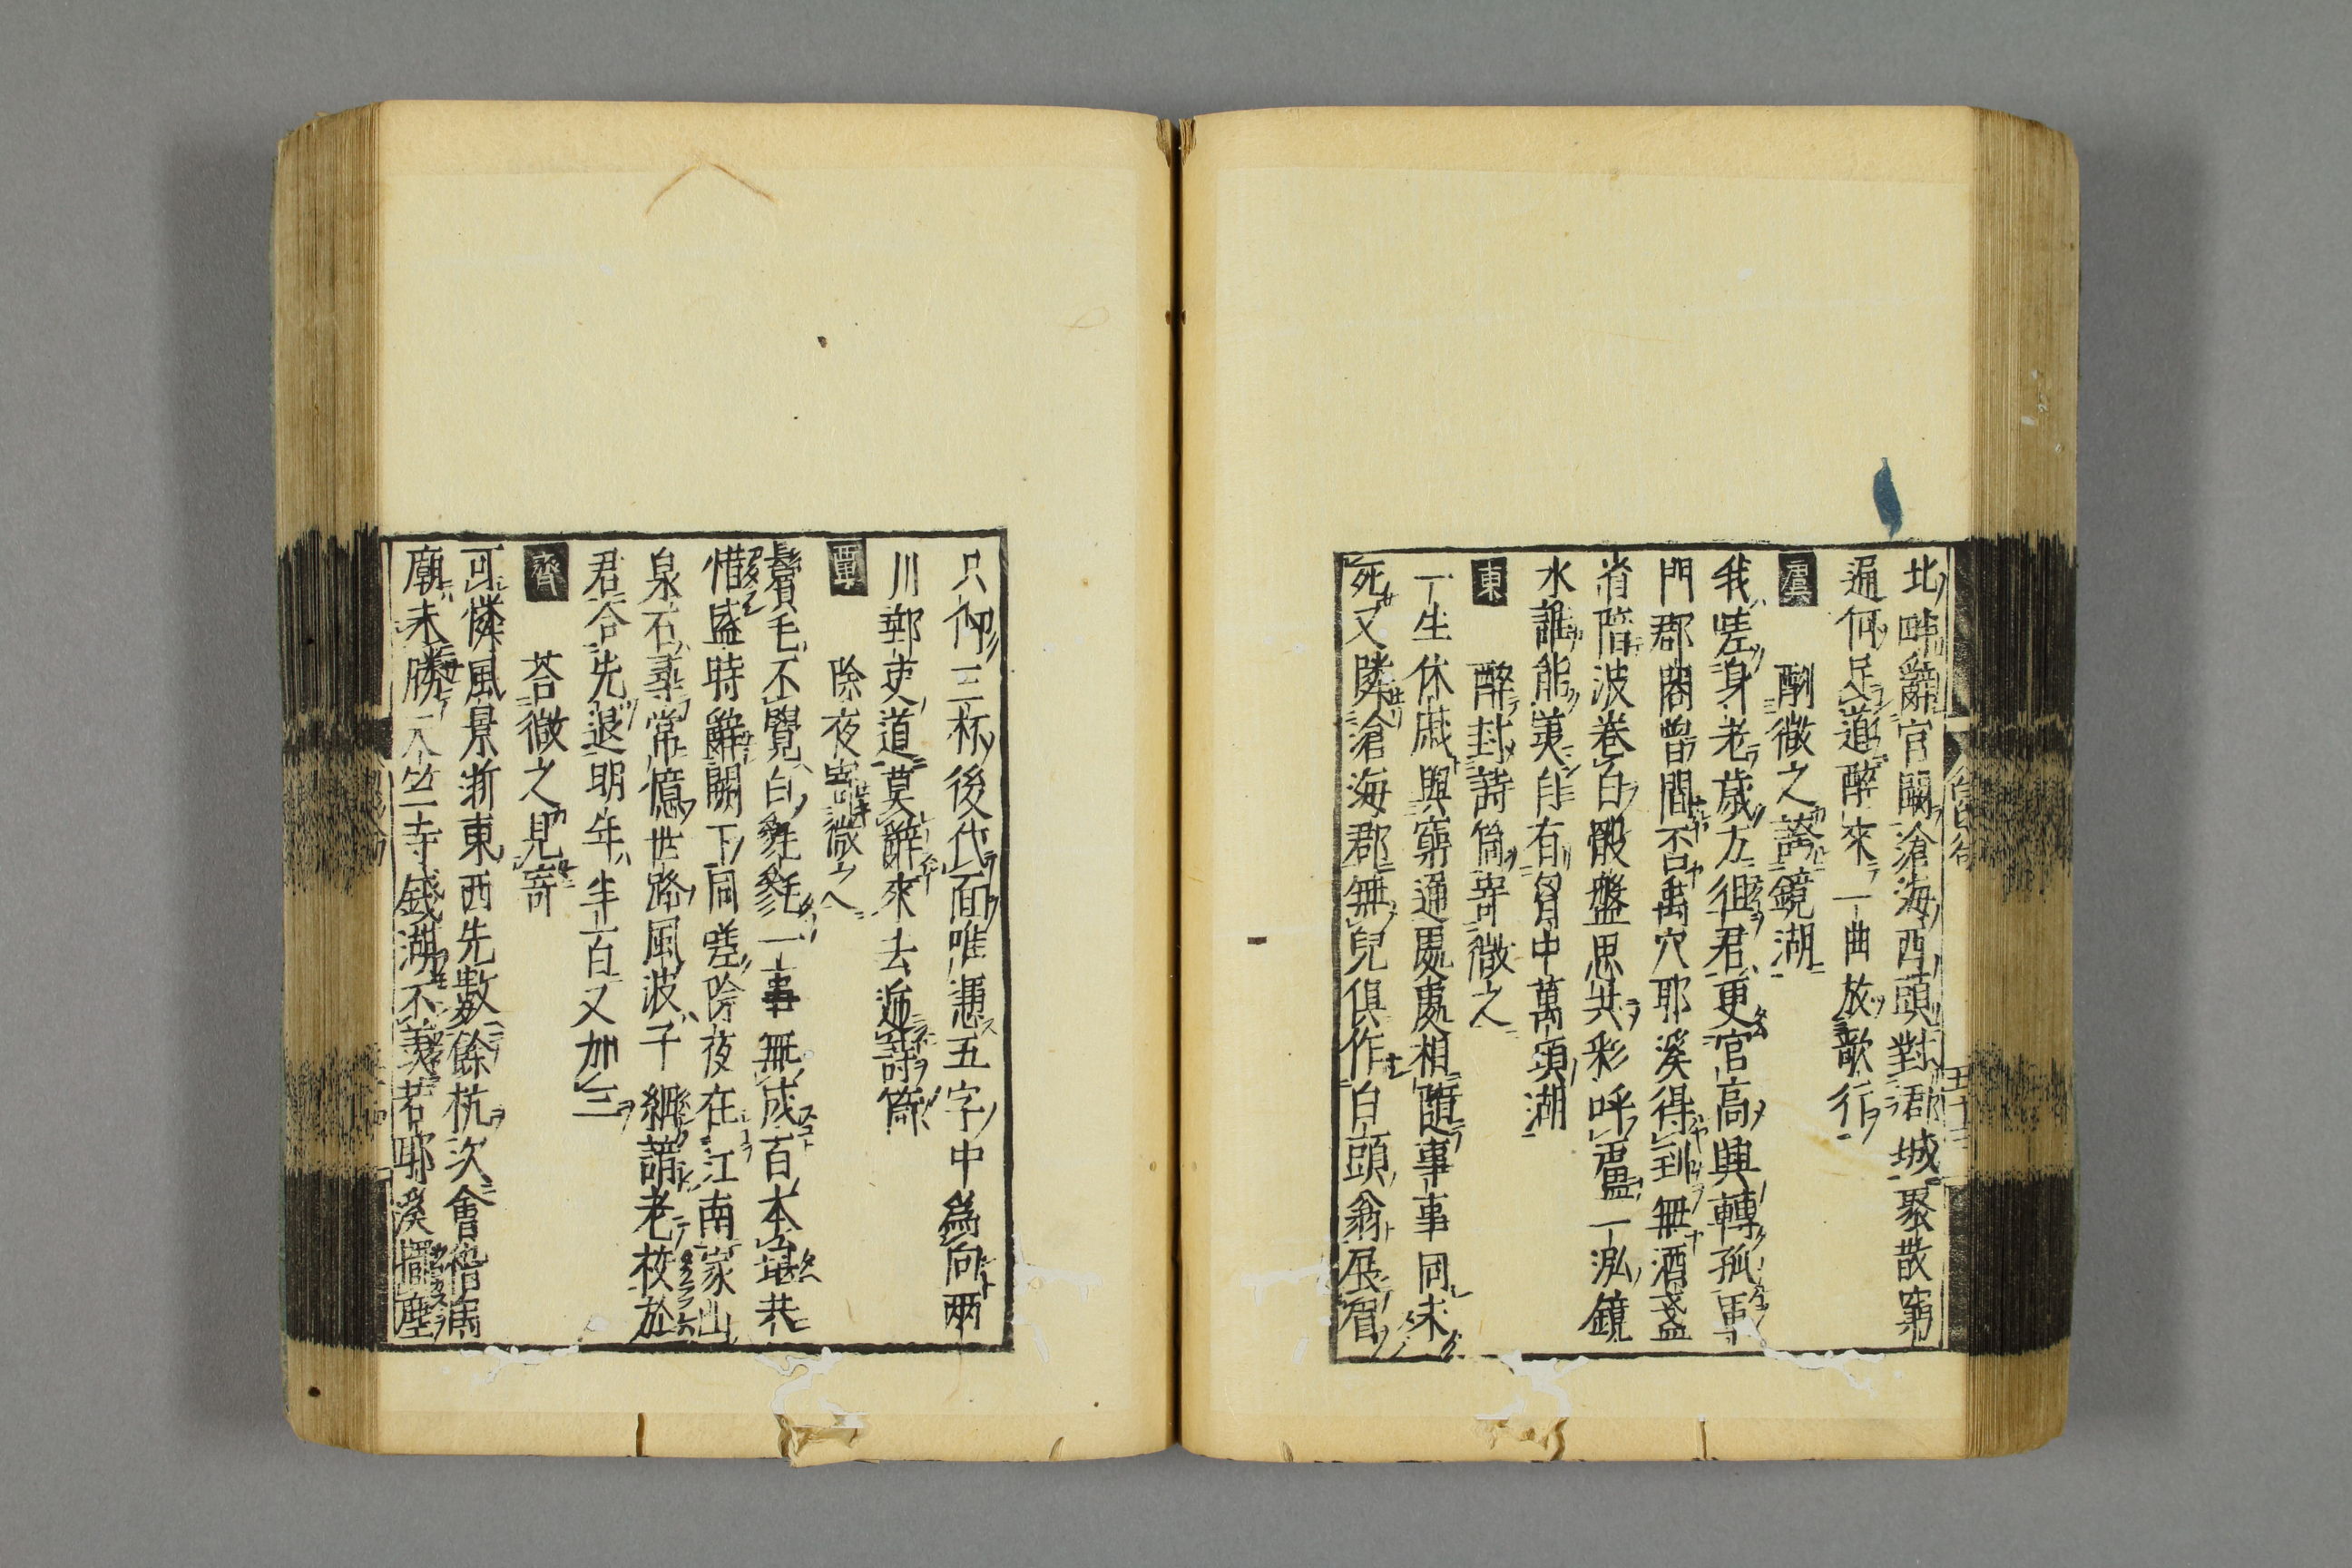 北畔辭官闕滄海西頭對郡城聚散窮
通何足道醉來一曲放歌行
虞 酬微之誇鏡湖
我嗟身老歲方徂君更官高興轉孤軍
門郡閤曾間否禹穴耶溪得到無酒盞
省陪波卷白骰盤思共彩呼盧一泓鏡
水誰能羨自有胷中萬頃湖
東 醉封詩筒寄微之
一生休戚與窮通處處相隨事事同未
死又隣滄海郡無兒俱作白頭翁展眉
只仰三杯後代面唯憑五字中為向兩
川郵吏道莫辭來去遞詩筒
覃 除夜寄微之
鬢毛不覺白毿毿一事無成百不堪共
惜盛時辭闕下同嗟除夜在江南家山
泉石尋常憶世路風波子細諳老校於
君合先退明年半百又加三
齊 荅微之見寄
可憐風景浙東西先數餘杭次會稽禹
廟未勝天竺寺錢湖不羨若耶溪擺塵